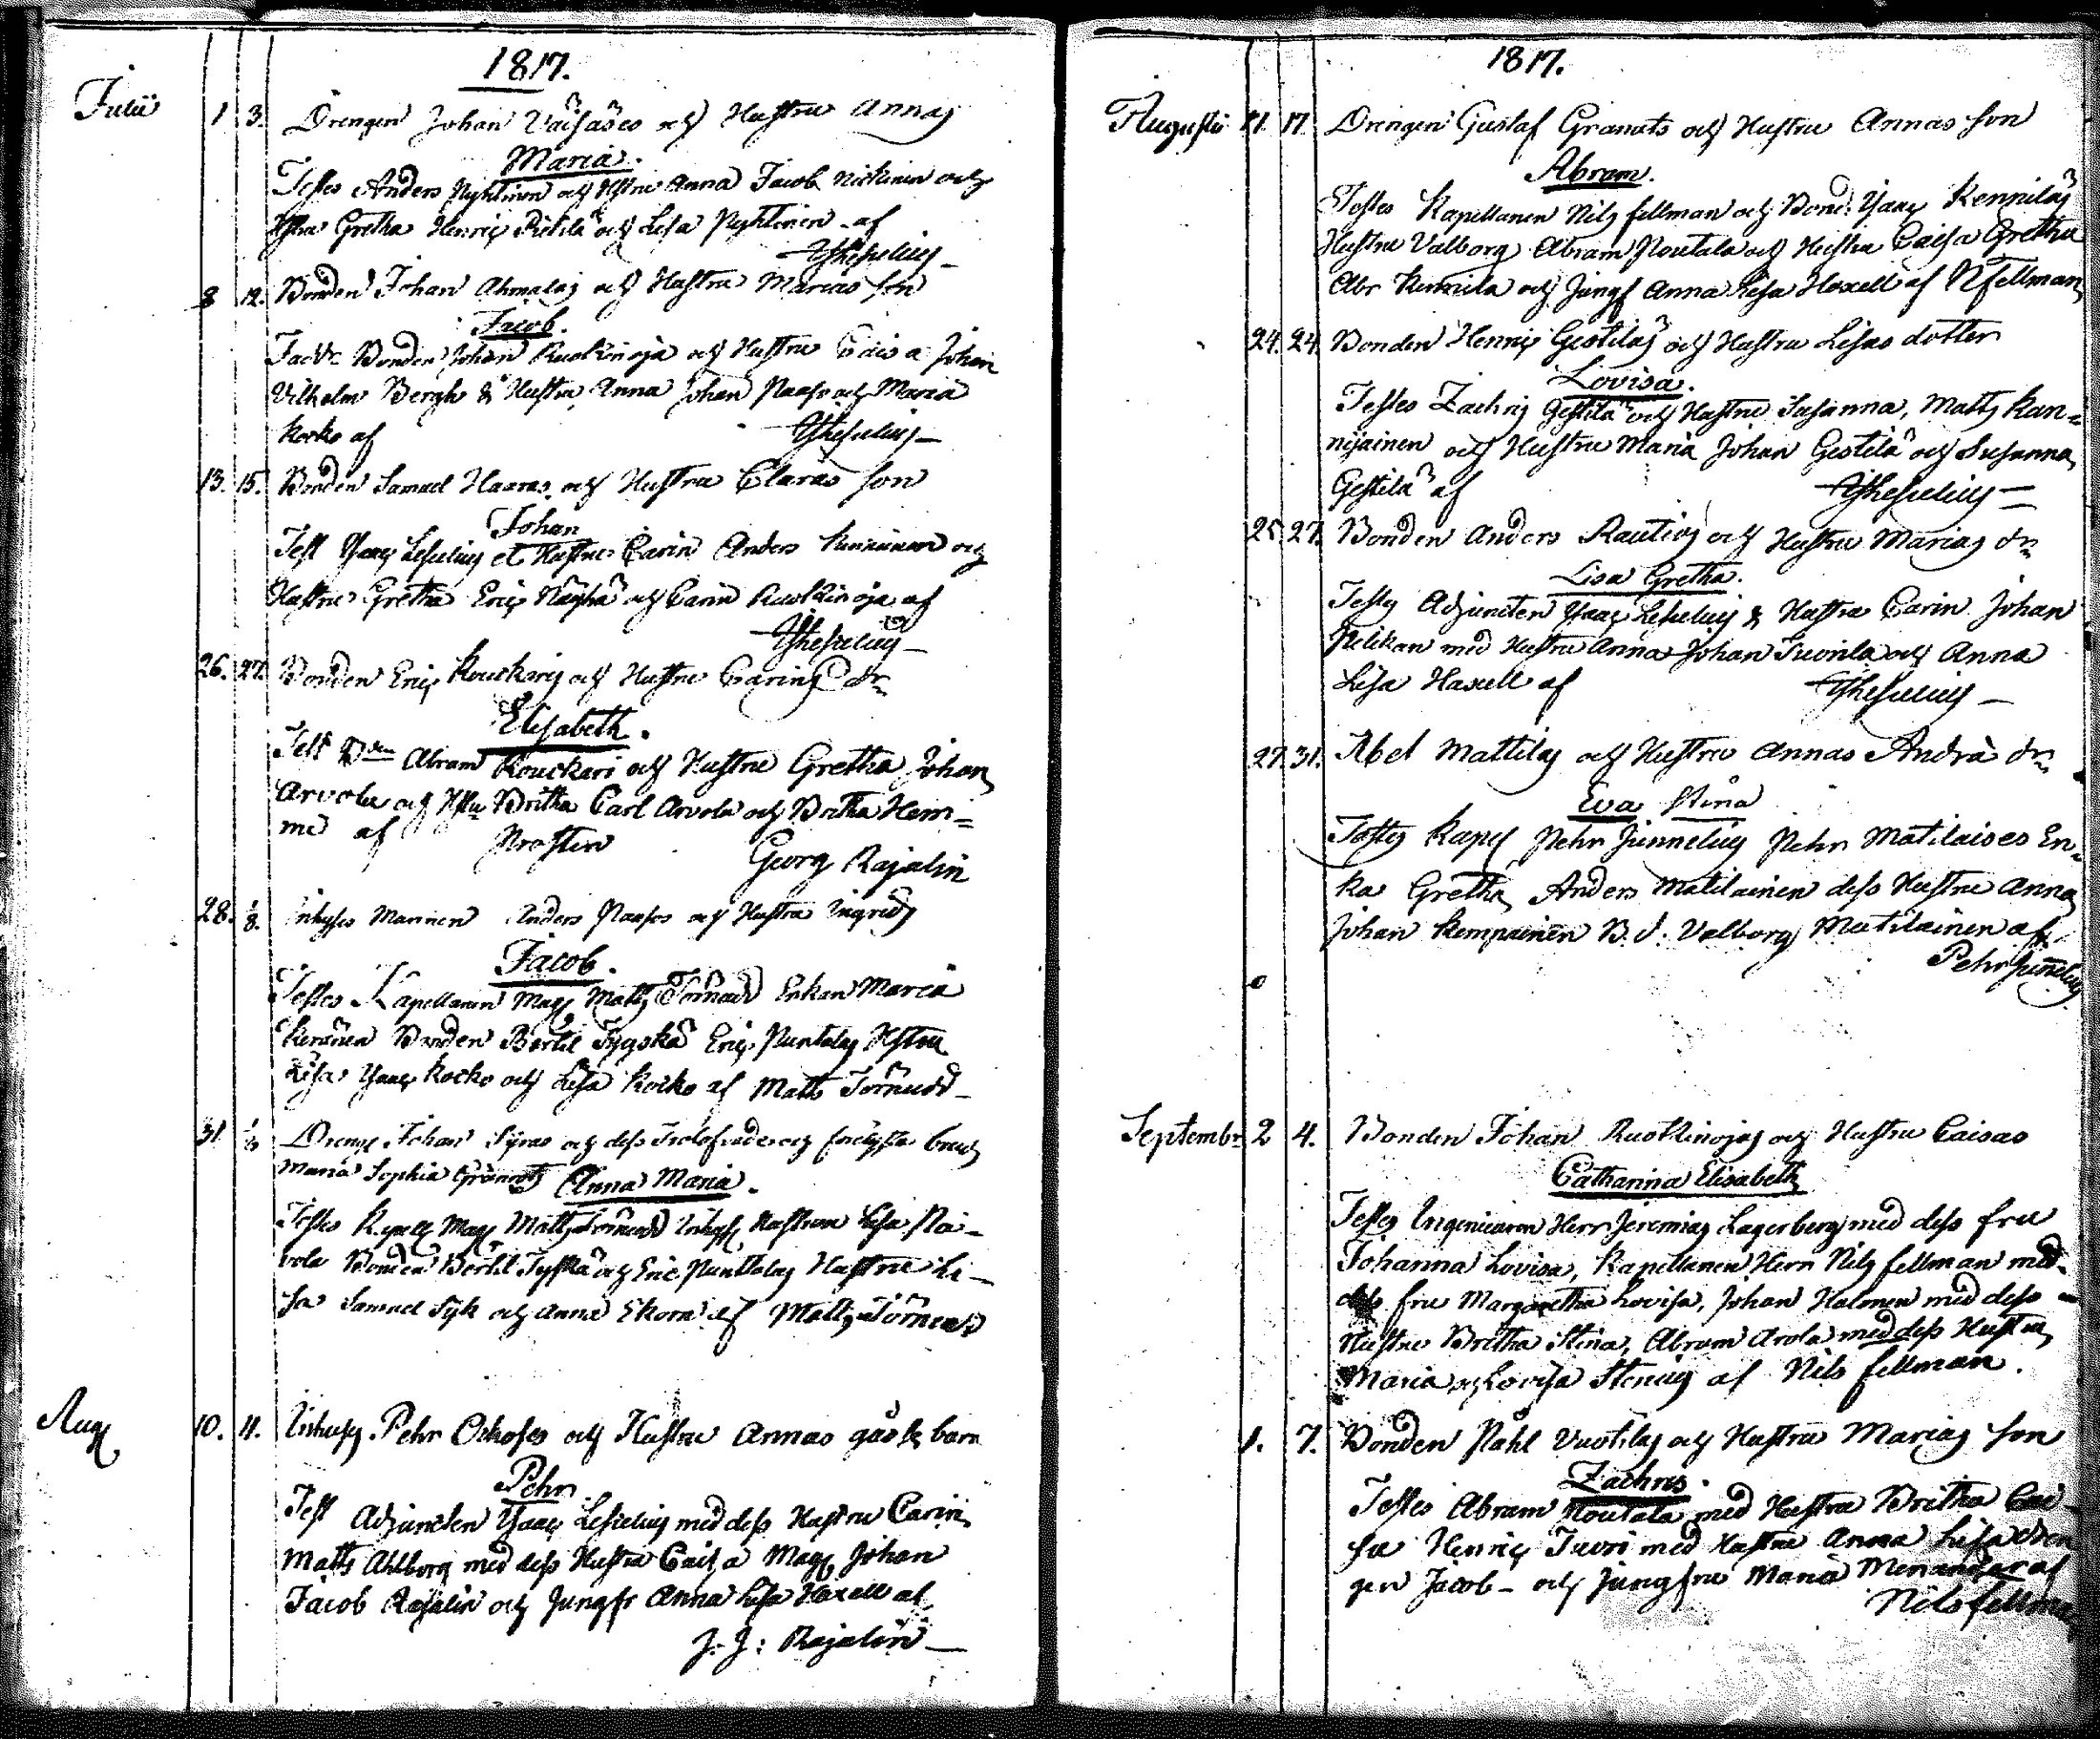 1817.
Julii 1 3. Drengen Johan Väisäses och Hustru Annas
Maria.
Testes Anders Pyhtinen och Hstru Anna Jacob och
Hstru Gretha Henric Pietilä och Lisa Pyhtinen af
YLesselius
8 12. Bonden Johan Ahmalas och Hustru Marias son
Jacob.
Bonden Johan Ruokinoja och Hustru Caisa Johan
Vilhelm Bergh & Hustru Anna Johan Paaso och Maria
Kocko af YLesselius
13. 15. Bonden Samuel Haaras och Hustru Claras son
Johan
Test Ysaac Leselius et Hustru Carin Anders och
Hustru Gretha Eric och Carin Ruokinoja af
YLesselius
26. 27. Bonden Eric Kouckaris och Hustru Carins dr
Elisabeth.
Test Abram Kouckari och Hustru Gretha Johan
Arvola och Hstru Britha Carl Arvola och Britha Hem=
me af Prosten Georg Rajalin
28. 1/8. Inhyses Mannen Anders Paasos och Hustru Ingrids
Jacob.
Testes Kapellanen Mag Matts Törnudd Enkan Maria
Keränen Bonden Bertil Tyyskä Eric Puntalas Hstru
Lisa Ysaac Kocko och Lisa Kocko af Matts Törnudd
31 Dreng Johan Syras och dess Trolofvade och
Maria Sophia Anna Maria.
Testes Kapell Mag Matts Törnudd Inhys Hustrun Lisa Pai-
vola Bonden Bertil Tyskä och Eric Puntalas Hustru Li-
sa Samuel Syk och Anna Ekorn af Matts Törnudd
Aug 10. 11. Inhyses Pehr och Hustru Annas barn
Pehr
Test Adjuncten Ysaac Leselius med dess Hustru Carin
Matts Ahlborg med dess Hustru Caisa Mag Johan
Jacob Rajalin och Jungfr Anna Lisa Hoxell af
J. J: Rajalin
1817.
Augusti 17 Drengen Gustaf Granats och Hustru Annas son
Abram.
Testes Kapellanen Nils Fellman och Bond. Ysaac Kennilas
Hustru Valborg Abram Poutala och Hustru Caisa Gretha
Abr och Jungf Anna Lisa Hoxell af N Fellman
24. 24. Bonden Henric Gestilas och Hustru Lisas dotter
Lovisa.
Testes Zachris Gestilä och Hustru Susanna, Matts Kan=
nijainen och Hustru Maria Johan Gestilä och Susanna
Gestilä af YLesselius
25. 27. Bonden Anders Rautios och Hustru Marias dr
Lisa Gretha.
Testes Adjuncten Ysaac Leselius & Hustru Carin Johan
Pelikan med Hustru Anna Johan Tuorila och Anna
Lisa Haxell af YLesselius
27. 31. Abel Mattilas och Hustru Annas Andra dr
Eva Stina
Testes Kapel Pehr Junnelius Pehr Matilaises En-
ka Gretha, Anders Matilainen dess Hustru Anna
Johan Kempainen B. d. Valborg Matilainen af
Pehr Junnelius
Septembr 2 4. Bonden Johan Ruokinojas och Hustru Caisas
Catharina Elisabeth
Testes Ingenieuren Herr Jeremias Lagerberg med dess fru
Johanna Lovisa, Kapellanen Herr Nils Fellman med
dess fru Margaretha Lovisa, Johan Halonen med dess
Hustru Britha Stina, Abram Arola med dess Hustru
Maria och Lovisa Stenius af Nils Fellman.
1. 7. Bonden Påhl Vuotilas och Hustru Marias son
Zachris.
Testes Abram Poutala med Hustru Britha Cai-
sa Henric Juvri med Hustru Anna Lisa Dren
gen Jacob - och Jungfru Maria Menander af
Nils Fellman